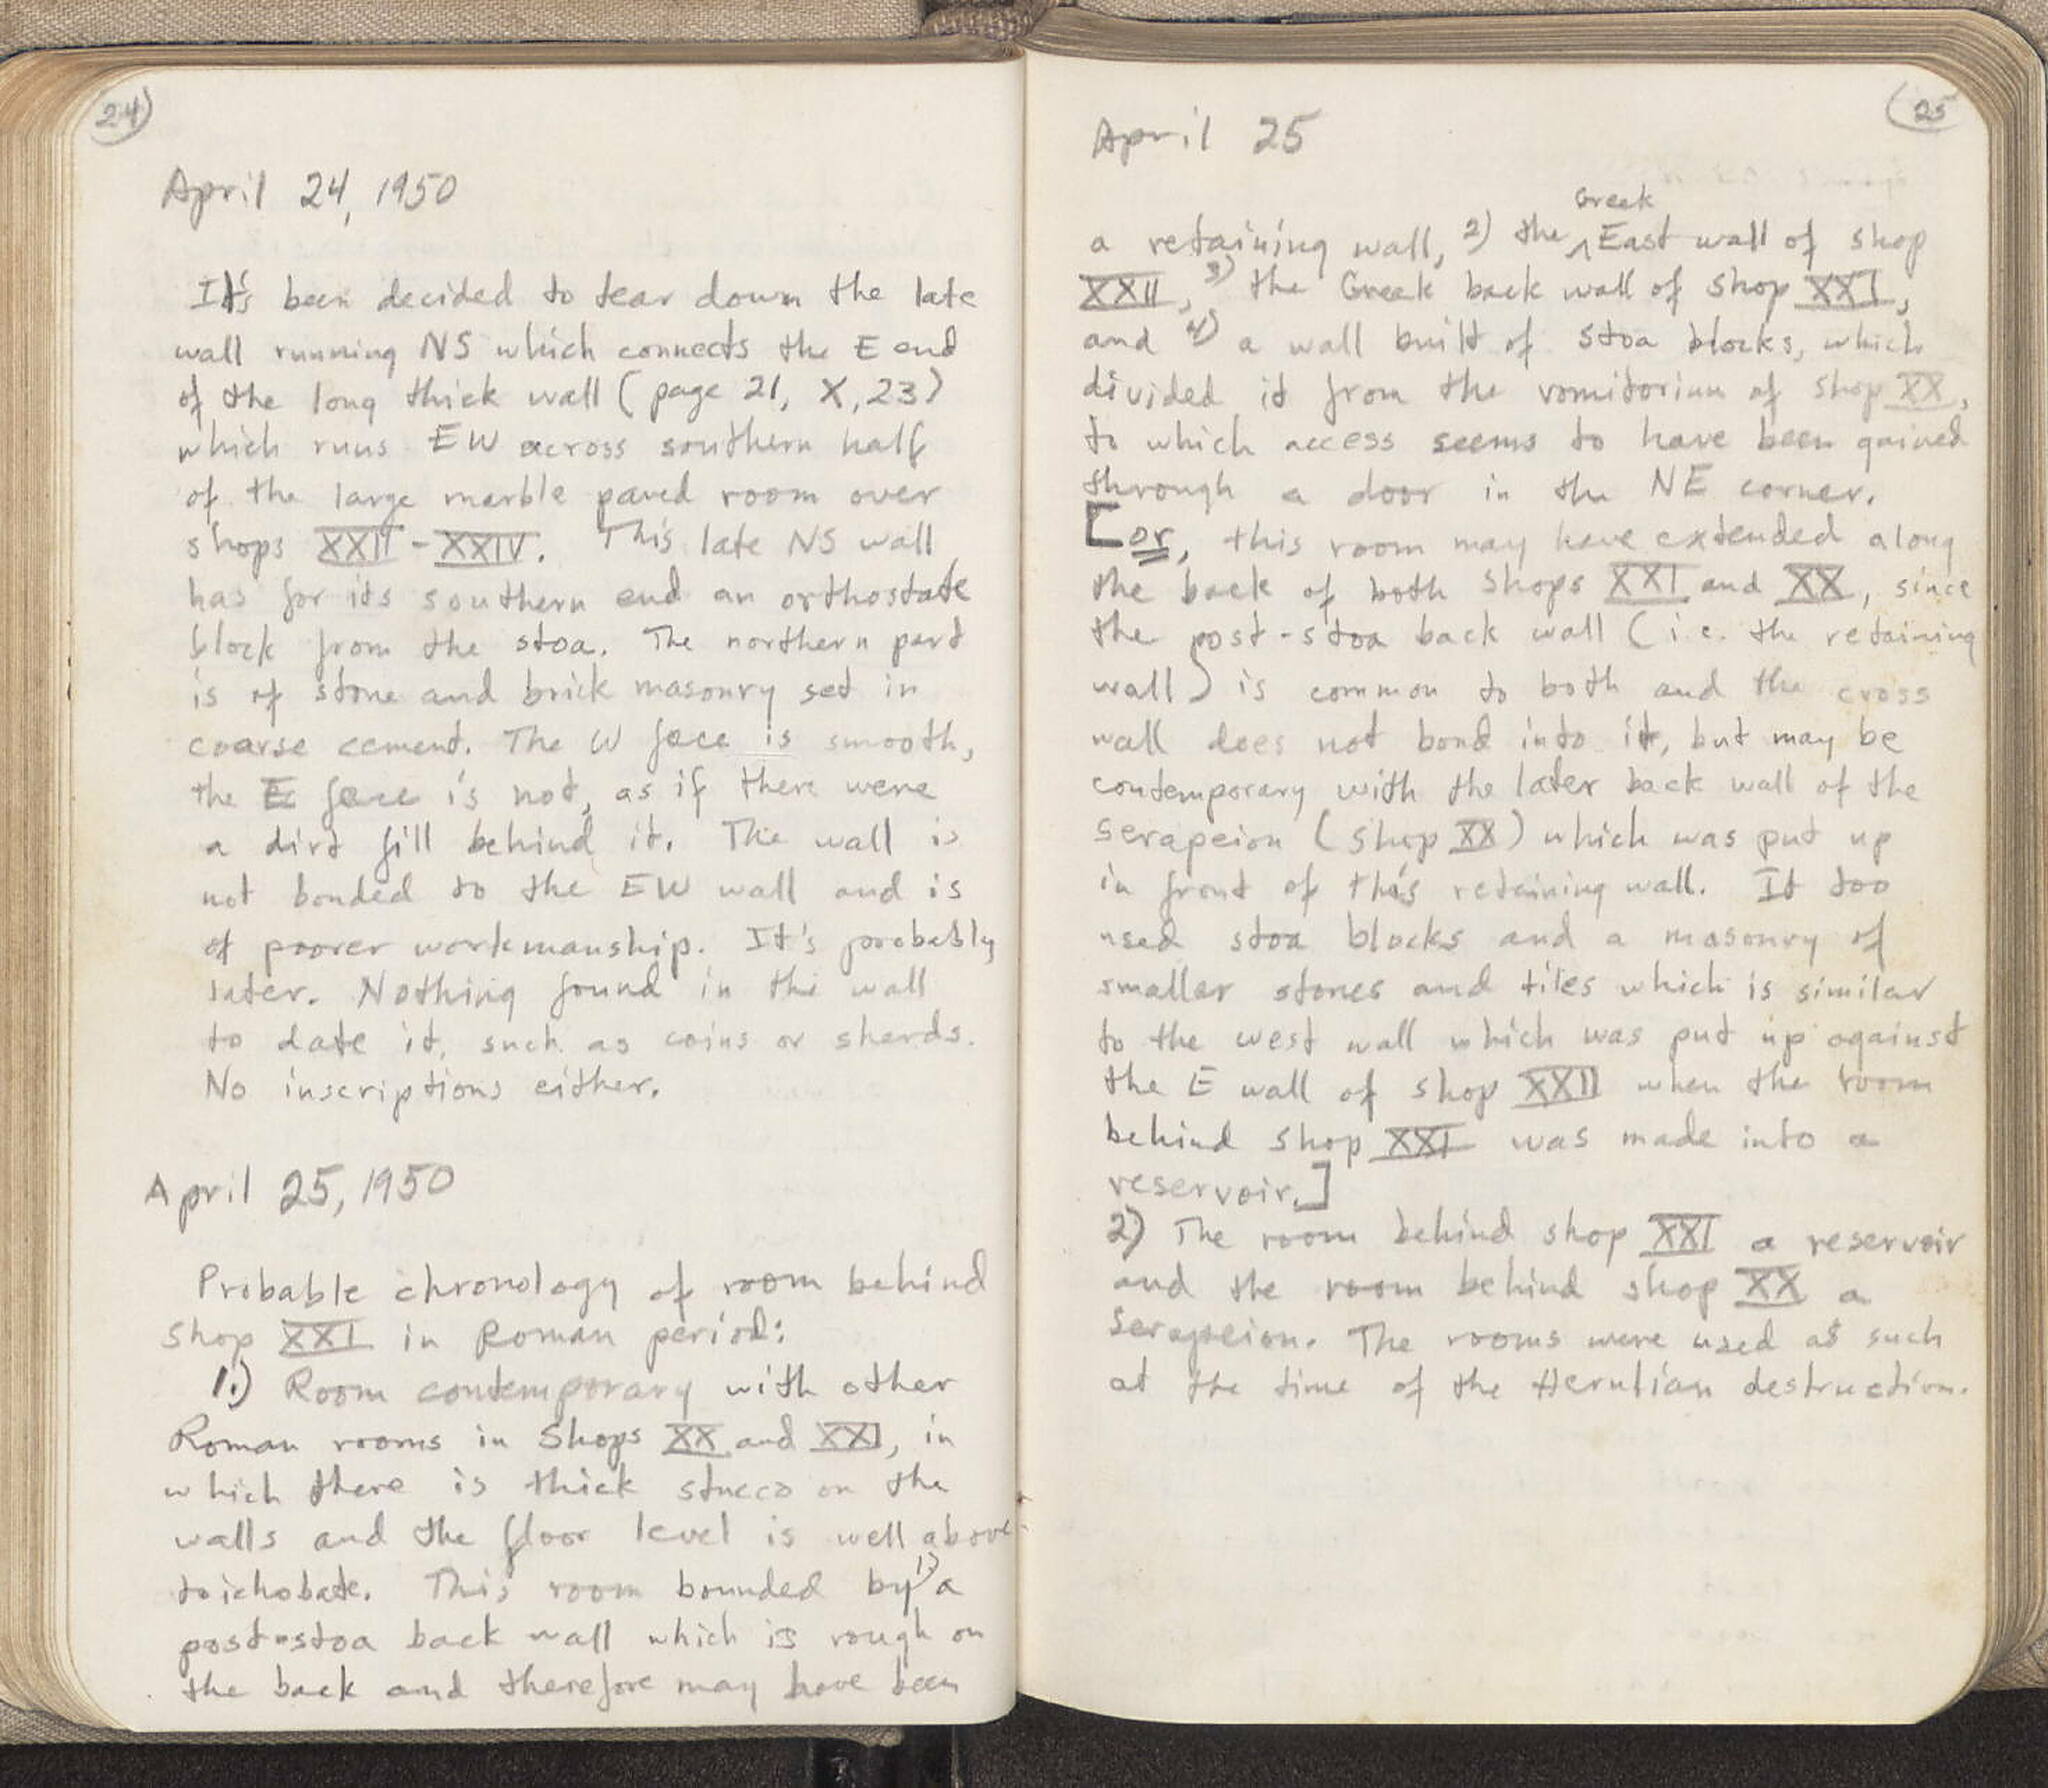 24)
April 24, 1950
It's been decided to tear down the late
wall running NS which connects the E end
of the long thick wall (page 21, X, 23)
which runs EW across southern half
of the large marble paved room over
shops XXII - XXIV. This late NS wall
has for its southern end an orthostate
block from the stoa. The northern part
is of stone and brick masonry set in
coarse cement. The W face is smooth,
the E face is not, as if there were
a dirt fill behind it. The wall is
not bonded to the EW wall and is
of poorer workmanship. It's probably
later. Nothing found in the wall
to date it, such as coins or sherds.
No inscriptions either.
April 25, 1950
Probable chronology of room behind
Shop XXI in Roman period:
1.) Room contemporary with other
Roman rooms in Shops XX and XXI, in
which there is thick stucco on the
walls and the floor level is well above
toichobate. This room bounded by 1) a
post-stoa back wall which is rough on
the back and therefore may have been
(25
April 25
a retaining wall, 2) the Greek East wall of shop
XXII, 3) the Greek back wall of shop XXI,
and 4) a wall built of stoa blocks, which
divided it from the vomitorium of shop XX,
to which access seems to have been gained
through a door in the NE corner.
[or, this room may have extended along
the back of both shops XXI and XX, since
the post-stoa back wall (i.e. the retaining
wall) is common to both and the cross
wall does not bond into it, but may be
contemporary with the later back wall of the
Serapeion (Shop XX) which was put up
in front of this retaining wall. It too
used stoa blocks and a masonry of
smaller stones and tiles which is similar
to the west wall which was put up against
the E wall of shop XXII when the room
behind shop XXI was made into a
reservoir.]
2) The room behind shop XXI a reservoir
and the room behind shop XX a
Serapeion. The rooms were used as such
at the time of the Herulian destruction.